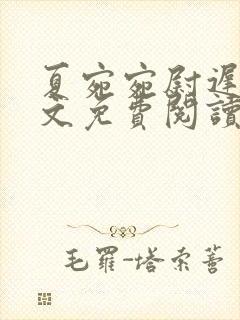 夏宛宛尉遲
文免費閱讀
毛羅-塔索蒈